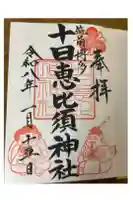 奉拝
筑前博多
十日恵比須神社
令和八年一月十日